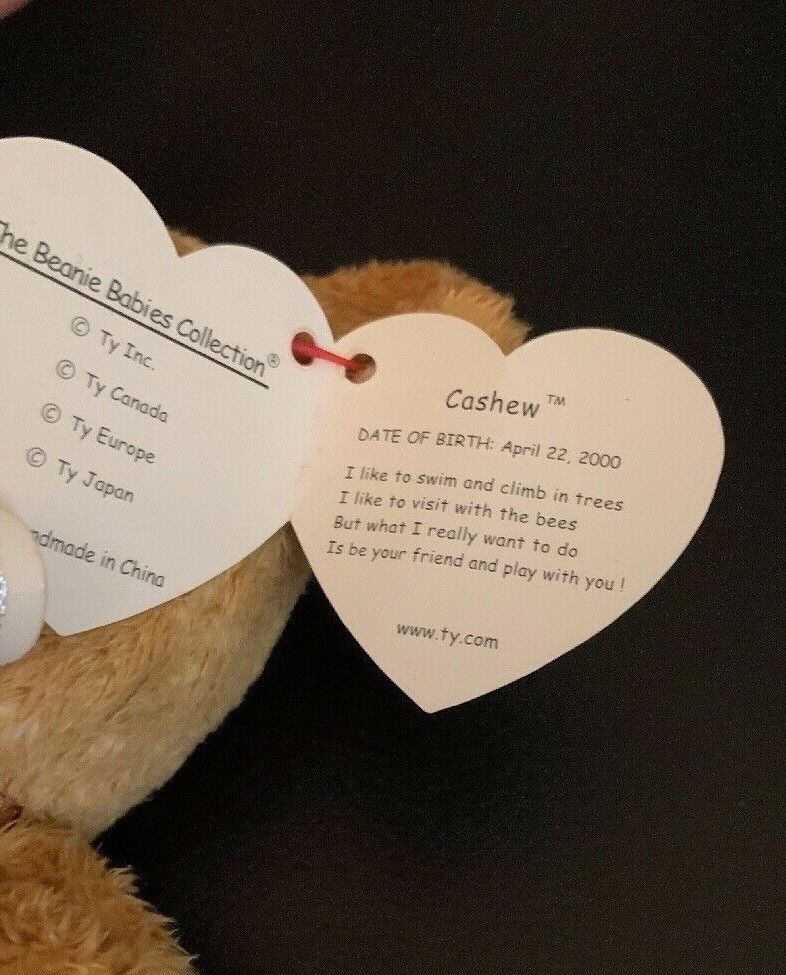 The Beanie Babies Collection®
© Ty Inc.
© Ty Canada
© Ty Europe
© Ty Japan
ndmade in China
Cashew™
DATE OF BIRTH: April 22, 2000
I like to swim and climb in trees
I like to visit with the bees
But what I really want to do
Is be your friend and play with you !
www.ty.com